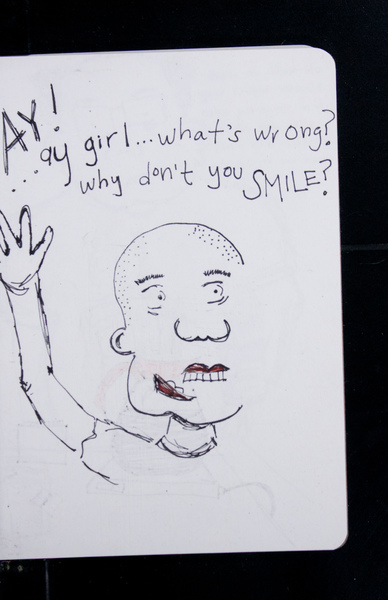 AY!
...ay girl...what's wrong?
why don't you SMILE?